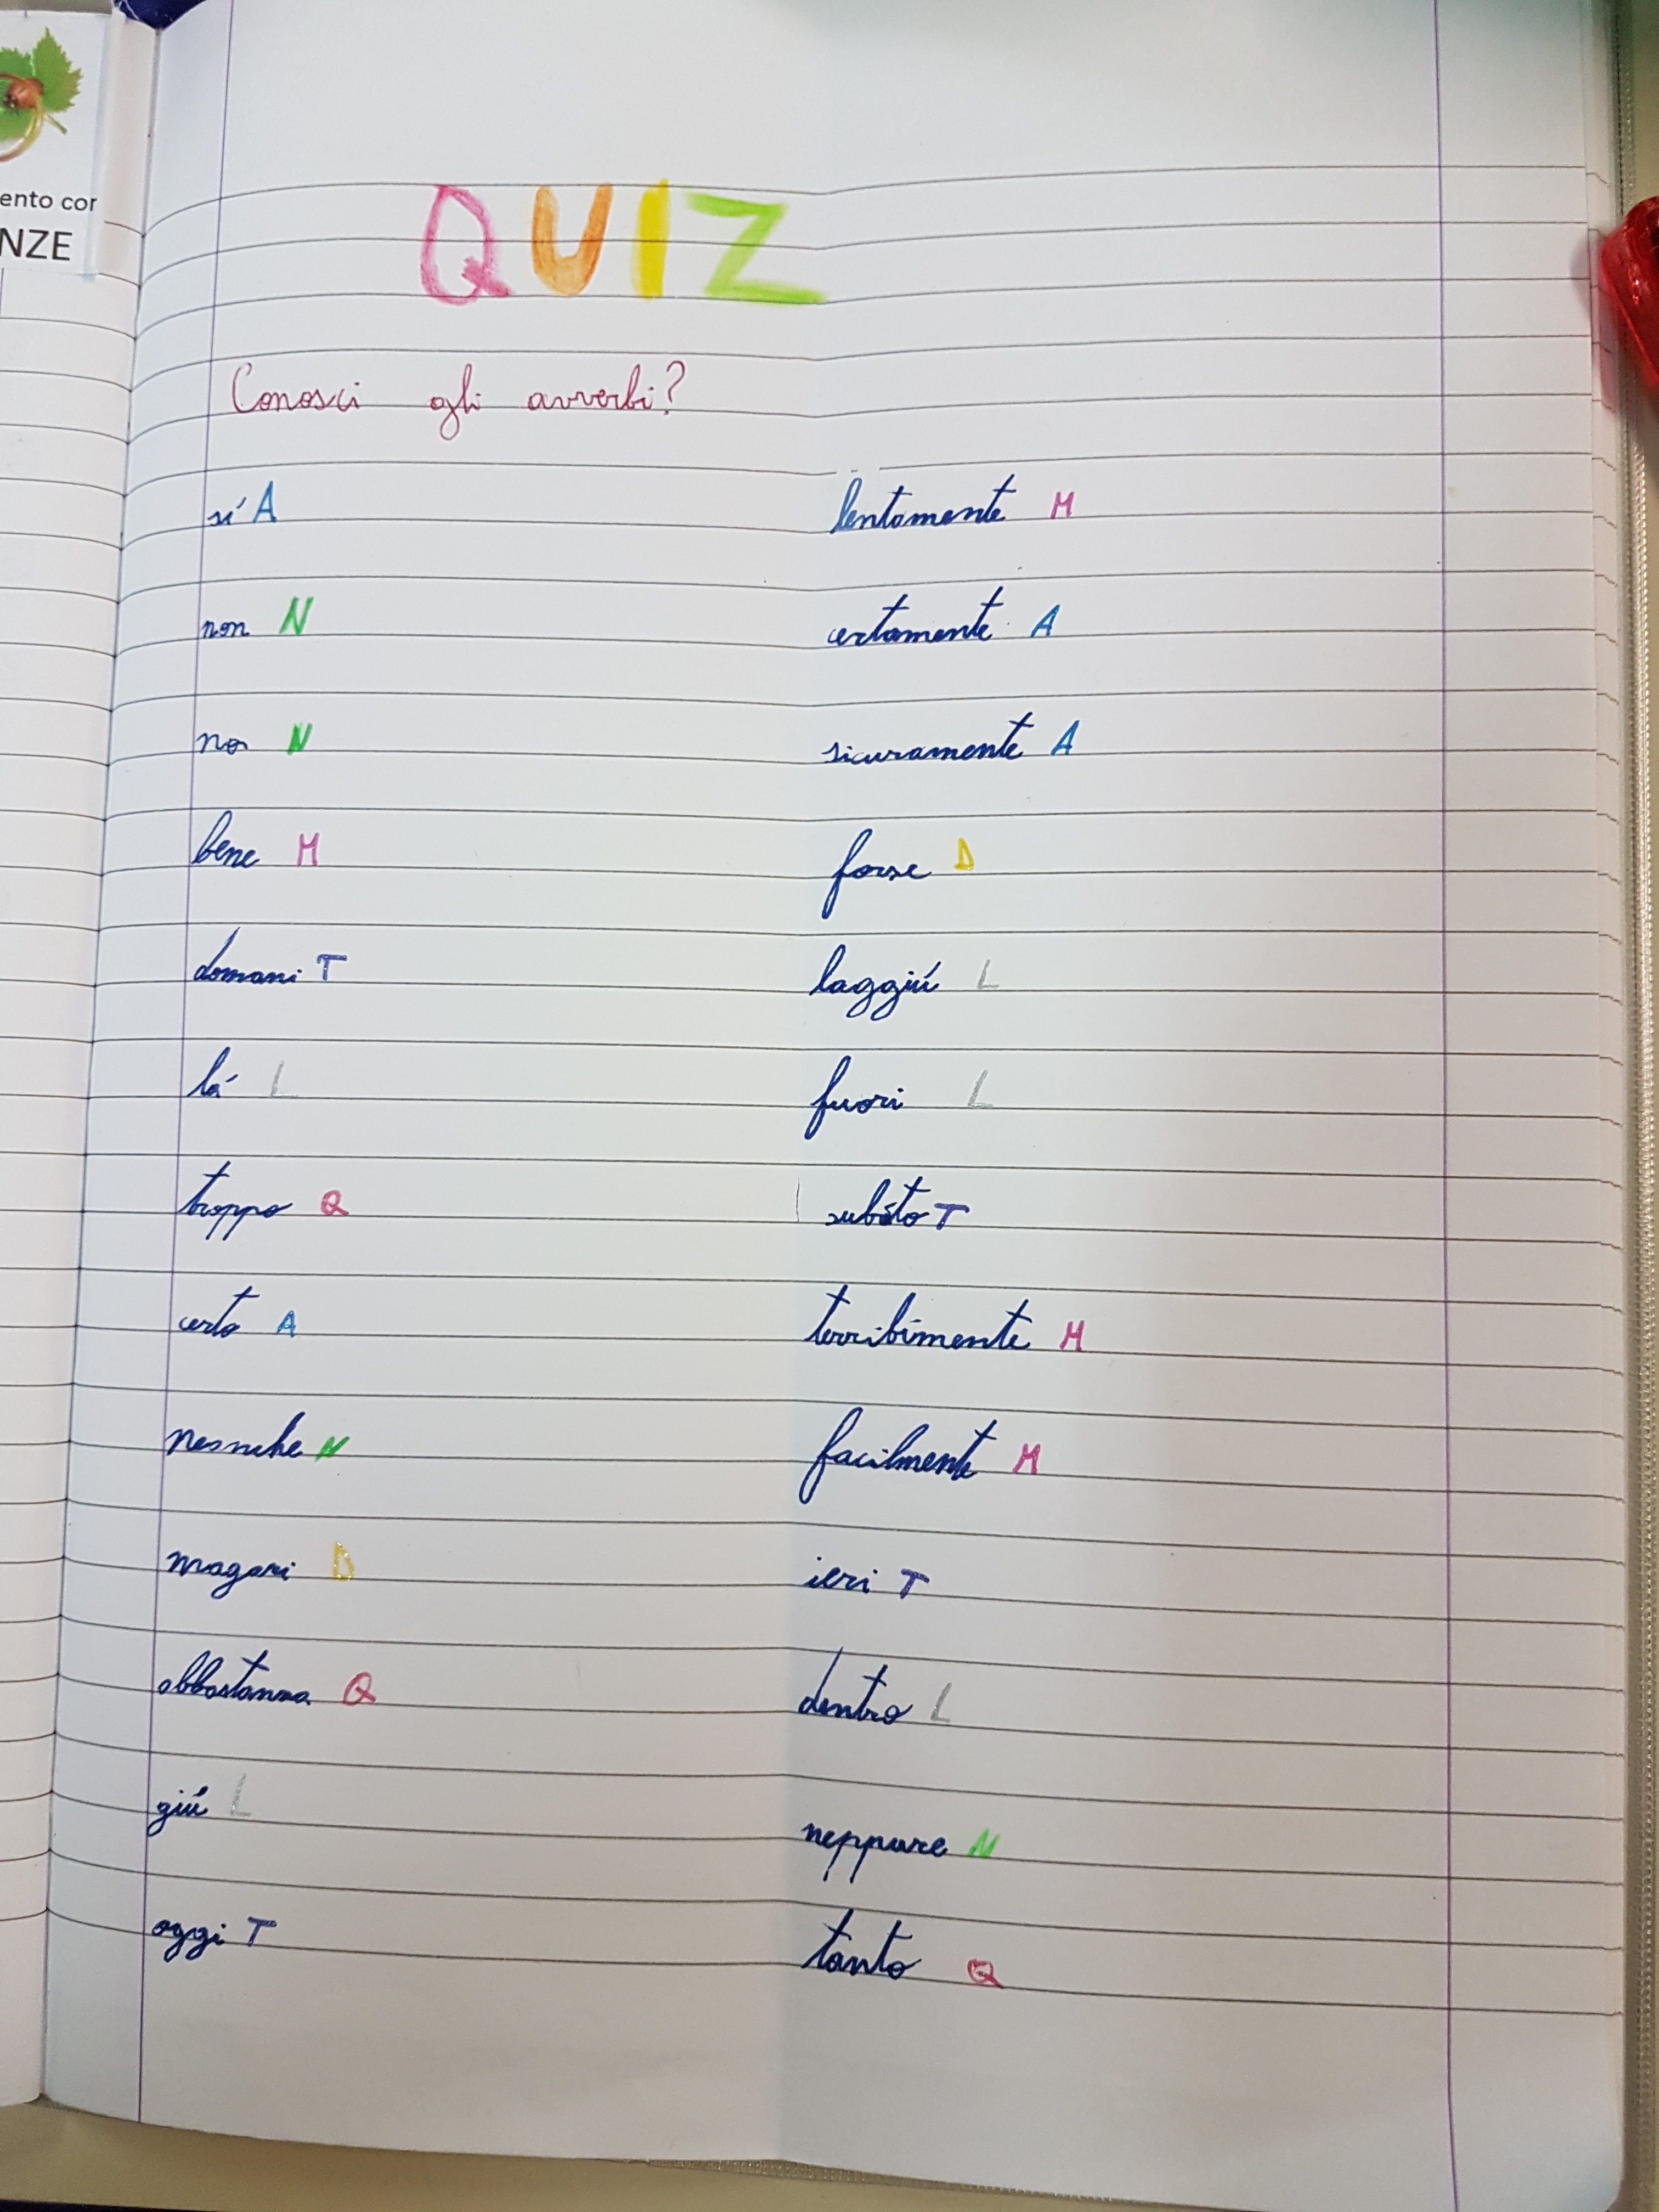 ento cor
NZE
QUIZ
Conosci gli avverbi?
sí A
non N
no N
bene M
domani T
lá L
troppo Q
certo A
magari D
abbastanza Q
giú L
oggi T
lentamente M
certamente A
sicuramente A
forse D
laggiú L
fuori L
subito T
terribimente M
facilmente M
ieri T
dentro L
neppure N
tanto Q